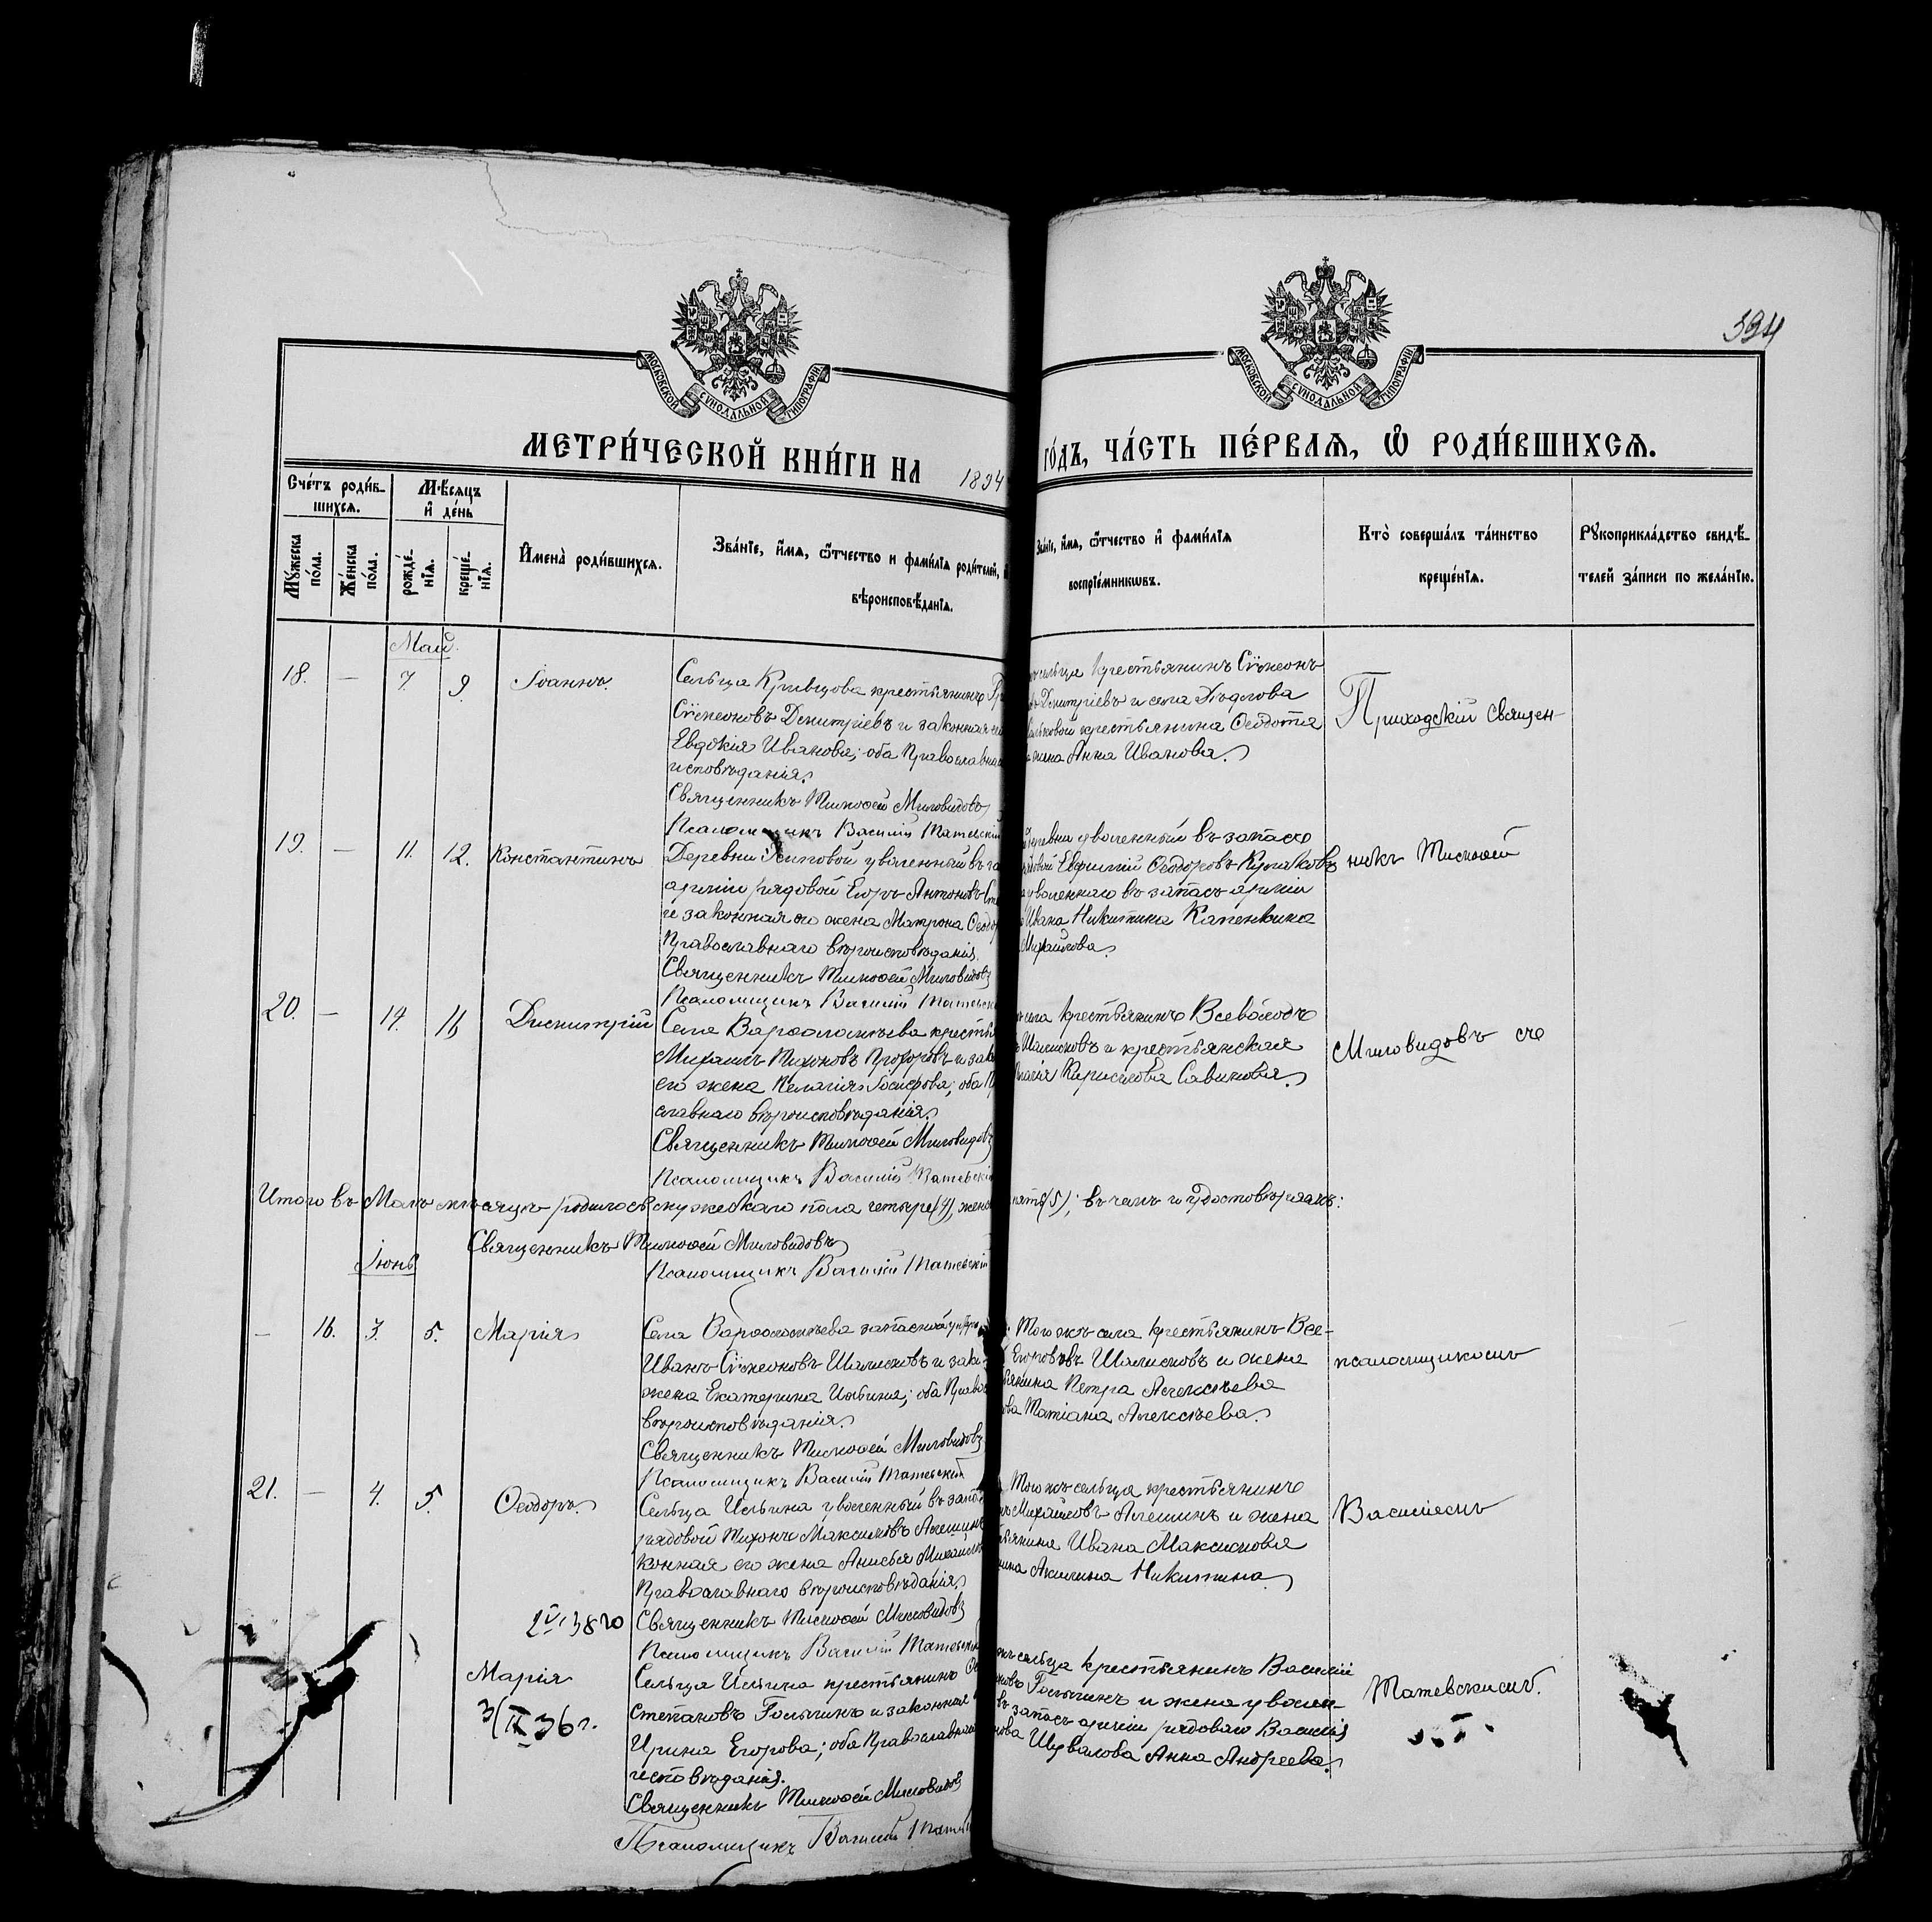 394
МОСКОВСКОЙ СУНОДАЛЬНОЙ ТИПОГРАФІИ
МОСКОВСКОЙ СУНОДАЛЬНОЙ ТИПОГРАФІИ
МЕТРИ́ЧЕСКОЙ КНИ́ГИ НА 1894 ГО́ДЪ, ЧА́СТЬ ПЕ́РВАѦ, Ѡ РОДИ́ВШИХСѦ.
Сче́тъ роди́в-
шихсѧ.
Мѣ́сяцъ
и де́нь
Мꙋ́жеска по́ла.
Же́нска по́ла.
рожде́-
нїѧ.
креще́-
нїѧ.
Имена̀ роди́вшихсѧ.
Зва́нїе, и́мѧ, ѻ҆́тчество и фами́лїѧ роди́телей,
вѣроисповѣ́данїѧ.
Зва́нїе, и́мѧ, ѻ҆́тчество и фами́лїѧ
воспрїе́мникѡвъ.
Кто̀ соверша́лъ та́инство
креще́нїѧ.
Рꙋкоприкла́дство свидѣ́-
телей за́писи по жела́нїю.
Май.
18. — 7. 9. Іоаннъ.
Сельца Кривцова крестьянинъ
Сѵмеоновъ Димитріевъ и законная
Евдокія Иванова; оба Православна
исповѣданія.
Священникъ Тимоѳей Миловидовъ
Псаломщикъ Василій Матевскій
сельца крестьянинъ Сѵмеонъ
Димитріевъ и села
крестьянина Ѳеодота
жена Анна Иванова.
Приходскій Священ-
19. — 11. 12. Константинъ
Деревни Осиповой уволенный въ за
арміи рядовой Егоръ Антоновъ
и законная его жена Матрона Ѳеодо
Православнаго вѣроисповѣданія.
Священникъ Тимоѳей Миловидовъ
Псаломщикъ Василій Матевскій
деревни уволенный въ запасъ
рядовой Евфимій Ѳеодоровъ Куликовъ
уволеннаго въ запасъ арміи
Ивана Никитина Капенкина
Михайлова.
никъ Тимоѳей
20. — 14. 16 Димитрій
Села Варѳоломѣева крестья
Михаилъ Тихоновъ Прохоровъ и зак
его жена Пелагія Іосифова; оба П
славнаго вѣроисповѣданія.
Священникъ Тимоѳей Миловидовъ
Псаломщикъ Василій Матевскій
села крестьянинъ Всеволодъ
Шалимовъ и крестьянская
Кириллова Савинова.
Миловидовъ съ
Итого въ Маѣ мѣсяцѣ родилось мужескаго пола четыре (4), жен пять (5); въ чемъ и удостовѣряемъ:
Священникъ Тимоѳей Миловидовъ
Псаломщикъ Василій Матевскій
Іюнь
— 16. 3. 5. Марія
Села Варѳоломѣева запасной
Иванъ Сѵмеоновъ Шалимовъ и зак
жена Екатерина Ильина; оба Право
вѣроисповѣданія.
Священникъ Тимоѳей Миловидовъ
Псаломщикъ Василій Матевскій
Того жъ села крестьянинъ Все-
Егоровъ Шалимовъ и жена
крестьянина Петра Алексѣева
Татіана Алексѣева.
псаломщикомъ
21. — 4. 5. Ѳеодоръ
Сельца Ильина уволенный въ запа
рядовой Тихонъ Максимовъ Алешинъ
конная его жена Анисья Михайло
Православнаго вѣроисповѣданія.
Священникъ Тимоѳей Миловидовъ
Псаломщикъ Василій Матевскій
Того жъ сельца крестьянинъ
Михайловъ Алешинъ и жена
крестьянина Ивана Максимова
Акилина Никитина.
Василіемъ
Марія
3/IX 36 г.
Сельца Ильина крестьянинъ
Степановъ Голыгинъ и законная
Ирина Егорова; оба Православнаго
исповѣданія.
Священникъ Тимоѳей Миловидовъ
Псаломщикъ Василій Матевскій
сельца крестьянинъ Василій
Голыгинъ и жена уволен-
въ запасъ арміи рядоваго Василія
Шувалова Анна Андреева.
Матевскимъ.